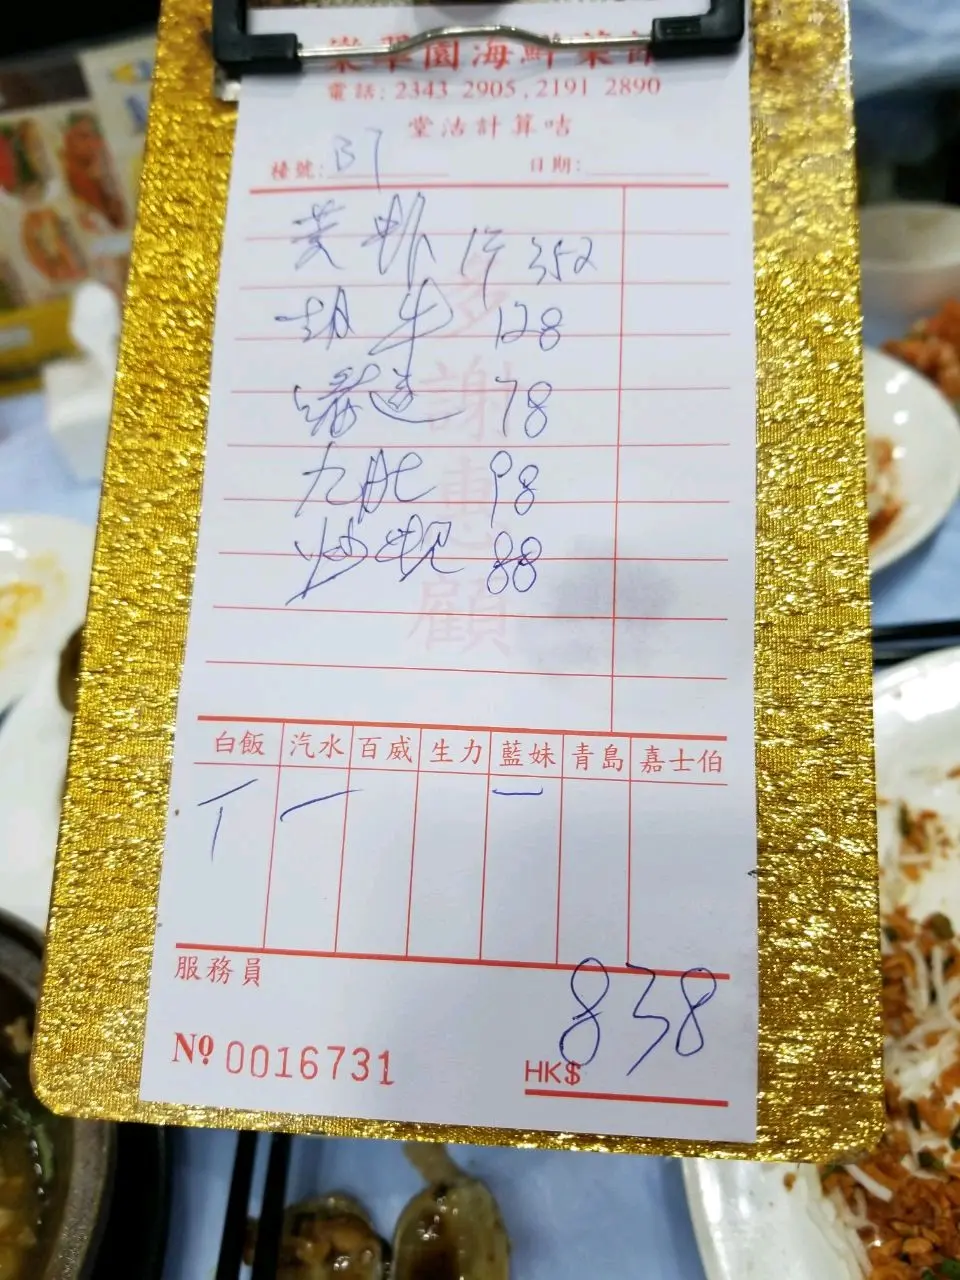 園海鮮菜館
電話: 2343 2905, 2191 2890
堂沽計算咭
檯號: B7 日期:
352
牛 128
78
九肚 98
炒蜆 88
多謝惠顧
白飯 汽水 百威 生力 藍妹 青島 嘉士伯
服務員
838
Nº 0016731
HK$